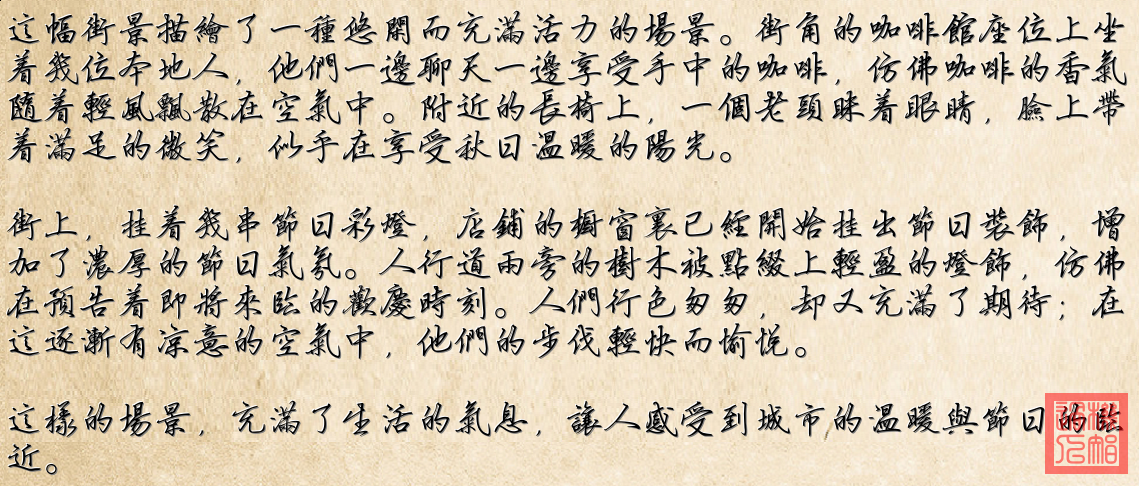 這幅街景描繪了一種悠閑而充滿活力的場景。街角的咖啡館座位上坐
着幾位本地人，他們一邊聊天一邊享受手中的咖啡，仿佛咖啡的香氣
隨着輕風飄散在空氣中。附近的長椅上，一個老頭眯着眼睛，臉上帶
着滿足的微笑，似乎在享受秋日溫暖的陽光。
街上，挂着幾串節日彩燈，店鋪的櫥窗裏已經開始挂出節日裝飾，增
加了濃厚的節日氣氛。人行道兩旁的樹木被點綴上輕盈的燈飾，仿佛
在預告着即將來臨的歡慶時刻。人們行色匆匆，却又充滿了期待；在
這逐漸有涼意的空氣中，他們的步伐輕快而愉悅。
這樣的場景，充滿了生活的氣息，讓人感受到城市的溫暖與節日的臨
近。